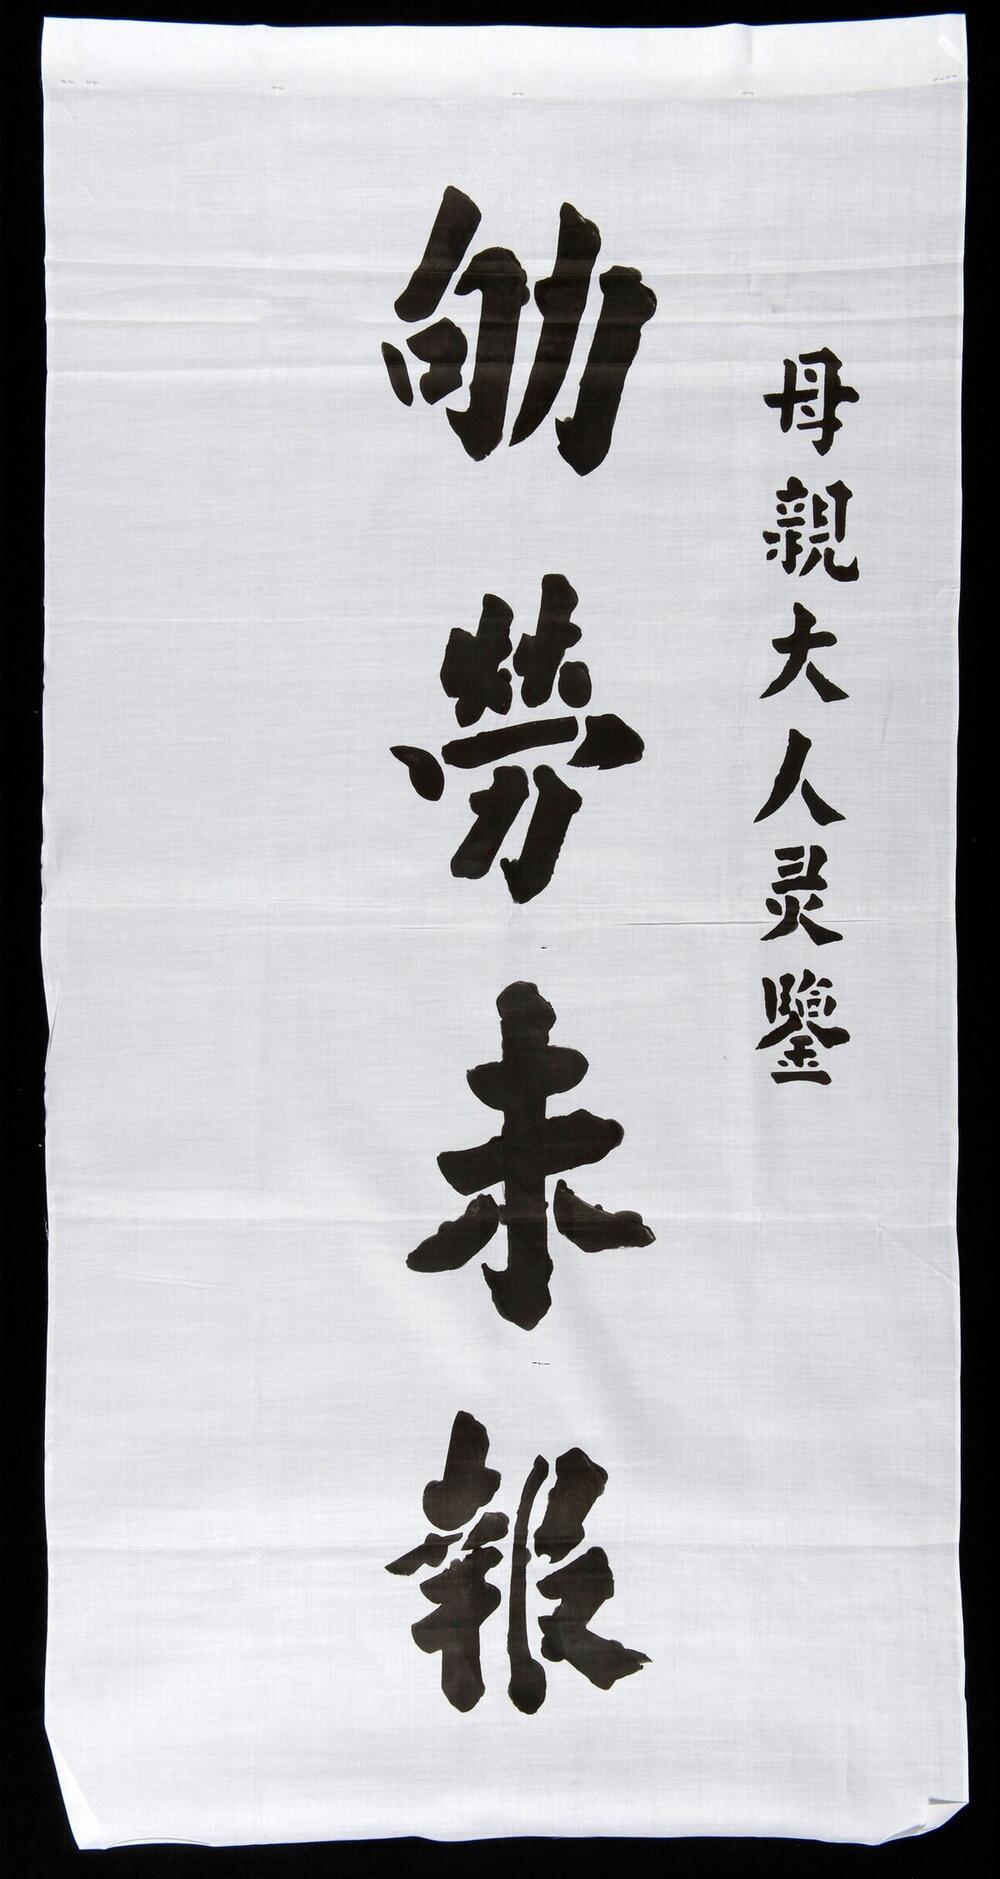 母親大人灵鑒
劬勞未報